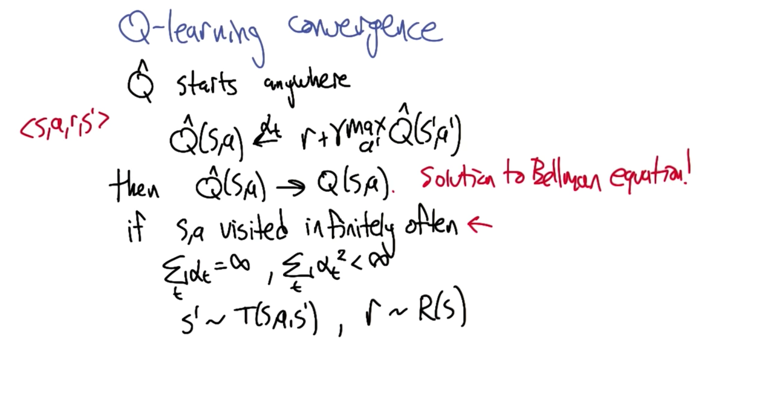 Q-learning convergence
Q̂ starts anywhere
<s,a,r,s'>
Q̂(s,a) ←αt r+γ max a' Q̂(s',a')
then Q̂(s,a) → Q(s,a). Solution to Bellman equation!
if s,a visited infinitely often ←
Σt αt = ∞ , Σt αt² < ∞
s' ~ T(s,a,s') , r ~ R(s)